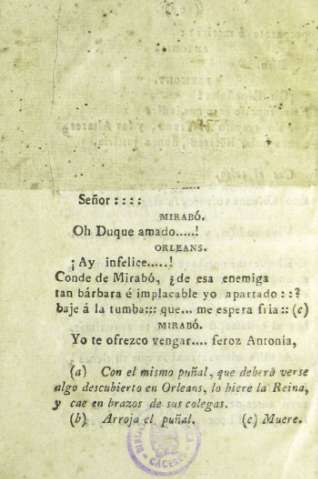 Señor : : : :
MIRABÓ.
Oh Duque amado.....!
ORLEANS.
¡Ay infelice.....!
Conde de Mirabó, ¿de esa enemiga
tan bárbara é implacable yo apartado : : ?
baje á la tumba::: que... me espera fria : : (c)
MIRABÓ.
Yo te ofrezco vengar.... feroz Antonia,
(a) Con el mismo puñal, que deberá verse
algo descubierto en Orleans, lo hiere la Reina,
y cae en brazos de sus colegas.
(b) Arroja el puñal. (c) Muere.
CÁCERES